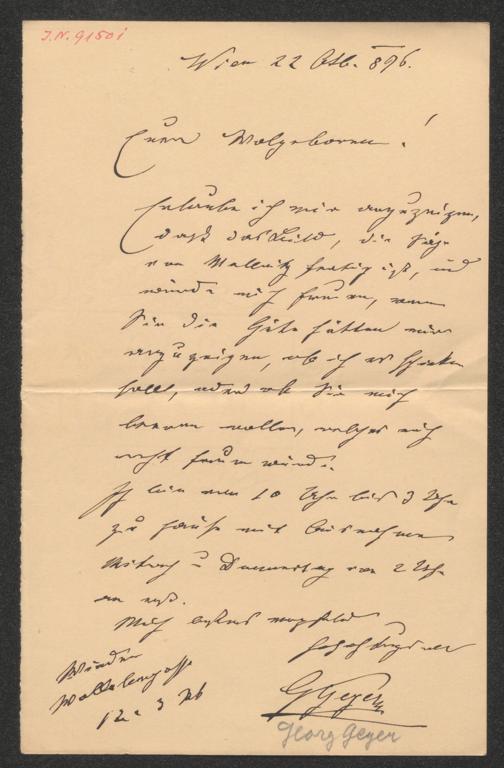 J.N. 91501
Wien 22 Otb. 896.
Euer Wolgeboren!
Erlaube ich mir anzuzeigen,
daß das Bild, die Säge
von Wallnitz fertig ist, und
würde mich freuen, wenn
Sie die Güte hätten mir
anzuzeigen, ob ich es schicken
soll, oder ob Sie mich
beeren wollen, welches mich
recht freuen würde.
Ich bin von 10 Uhr bis 3 Uhr
zu Hause mit Ausnahme
Mitwoch u Donnerstag von 2 Uhr
an erst.
Mich bestens empfehle
hochachtungsvoll
GGeyer
Georg Geyer
Wieden
12 3